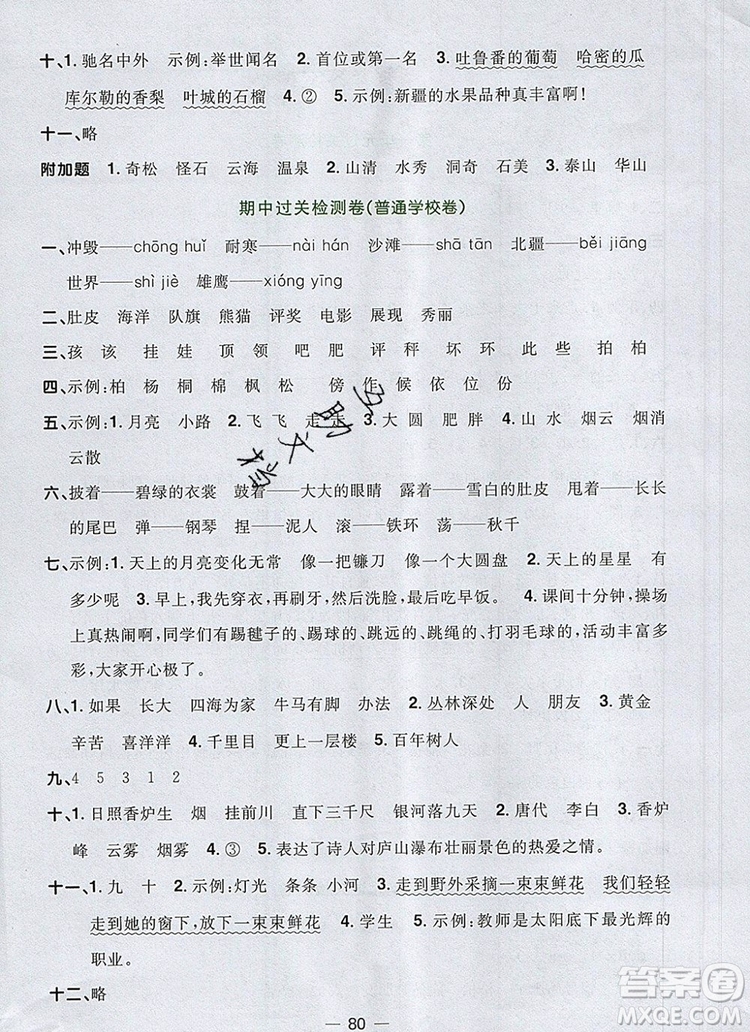 十、1. 驰名中外　示例:举世闻名　2. 首位或第一名　3. 吐鲁番的葡萄　哈密的瓜
库尔勒的香梨　叶城的石榴　4. ②　5. 示例:新疆的水果品种真丰富啊!
十一、略
附加题　1. 奇松　怪石　云海　温泉　2. 山清　水秀　洞奇　石美　3. 泰山　华山
期中过关检测卷(普通学校卷)
一、冲毁——chōng huǐ　耐寒——nài hán　沙滩——shā tān　北疆——běi jiāng
世界——shì jiè　雄鹰——xióng yīng
二、肚皮　海洋　队旗　熊猫　评奖　电影　展现　秀丽
三、孩　该　挂　娃　顶　领　吧　肥　评　秤　坏　环　此　些　拍　柏
四、示例:柏　杨　桐　棉　枫　松　傍　作　候　依　位　份
五、示例:1. 月亮　小路　2. 飞　飞　走　走　3. 大　圆　肥　胖　4. 山　水　烟云　烟消
云散
六、披着——碧绿的衣裳　鼓着——大大的眼睛　露着——雪白的肚皮　甩着——长长
的尾巴　弹——钢琴　捏——泥人　滚——铁环　荡——秋千
七、示例:1. 天上的月亮变化无常　像一把镰刀　像一个大圆盘　2. 天上的星星　有
多少呢　3. 早上,我先穿衣,再刷牙,然后洗脸,最后吃早饭。　4. 课间十分钟,操场
上真热闹啊,同学们有踢毽子的、踢球的、跳远的、跳绳的、打羽毛球的,活动丰富多
彩,大家开心极了。
八、1. 如果　长大　四海为家　牛马有脚　办法　2. 丛林深处　人　朋友　3. 黄金
辛苦　喜洋洋　4. 千里目　更上一层楼　5. 百年树人
九、4　5　3　1　2
十、1. 日照香炉生　烟　挂前川　直下三千尺　银河落九天　2. 唐代　李白　3. 香炉
峰　云雾　烟雾　4. ③　5. 表达了诗人对庐山瀑布壮丽景色的热爱之情。
十一、1. 九　十　2. 示例:灯光　条条　小河　3. 走到野外采摘一束束鲜花　我们轻轻
走到她的窗下,放一束束鲜花　4. 学生　5. 示例:教师是太阳底下最光辉的
职业。
十二、略
80
答案圈
MXQE.COM